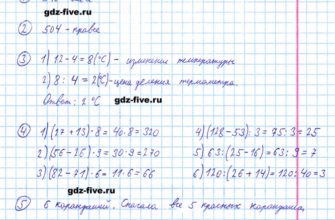 gdz-five.ru
② 504 - кравее
③ 1) 12-4=8(°С) - изменении температуры
2) 8:4=2(°С) - цена деления термометра.
Ответ: 2 °С
gdz-five.ru
④ 1) (17+13)·8=40·8=320 4) (128-53):3=75:3=25
2) (56-26)·9=30·9=270 5) 63:(25-16)=63:9=7
3) (82-71)·6=11·6=66 6) 120:(26+14)=120:40=3
gdz-five.ru
⑤ 6 карандашей. Сначала все 5 красных карандаша,